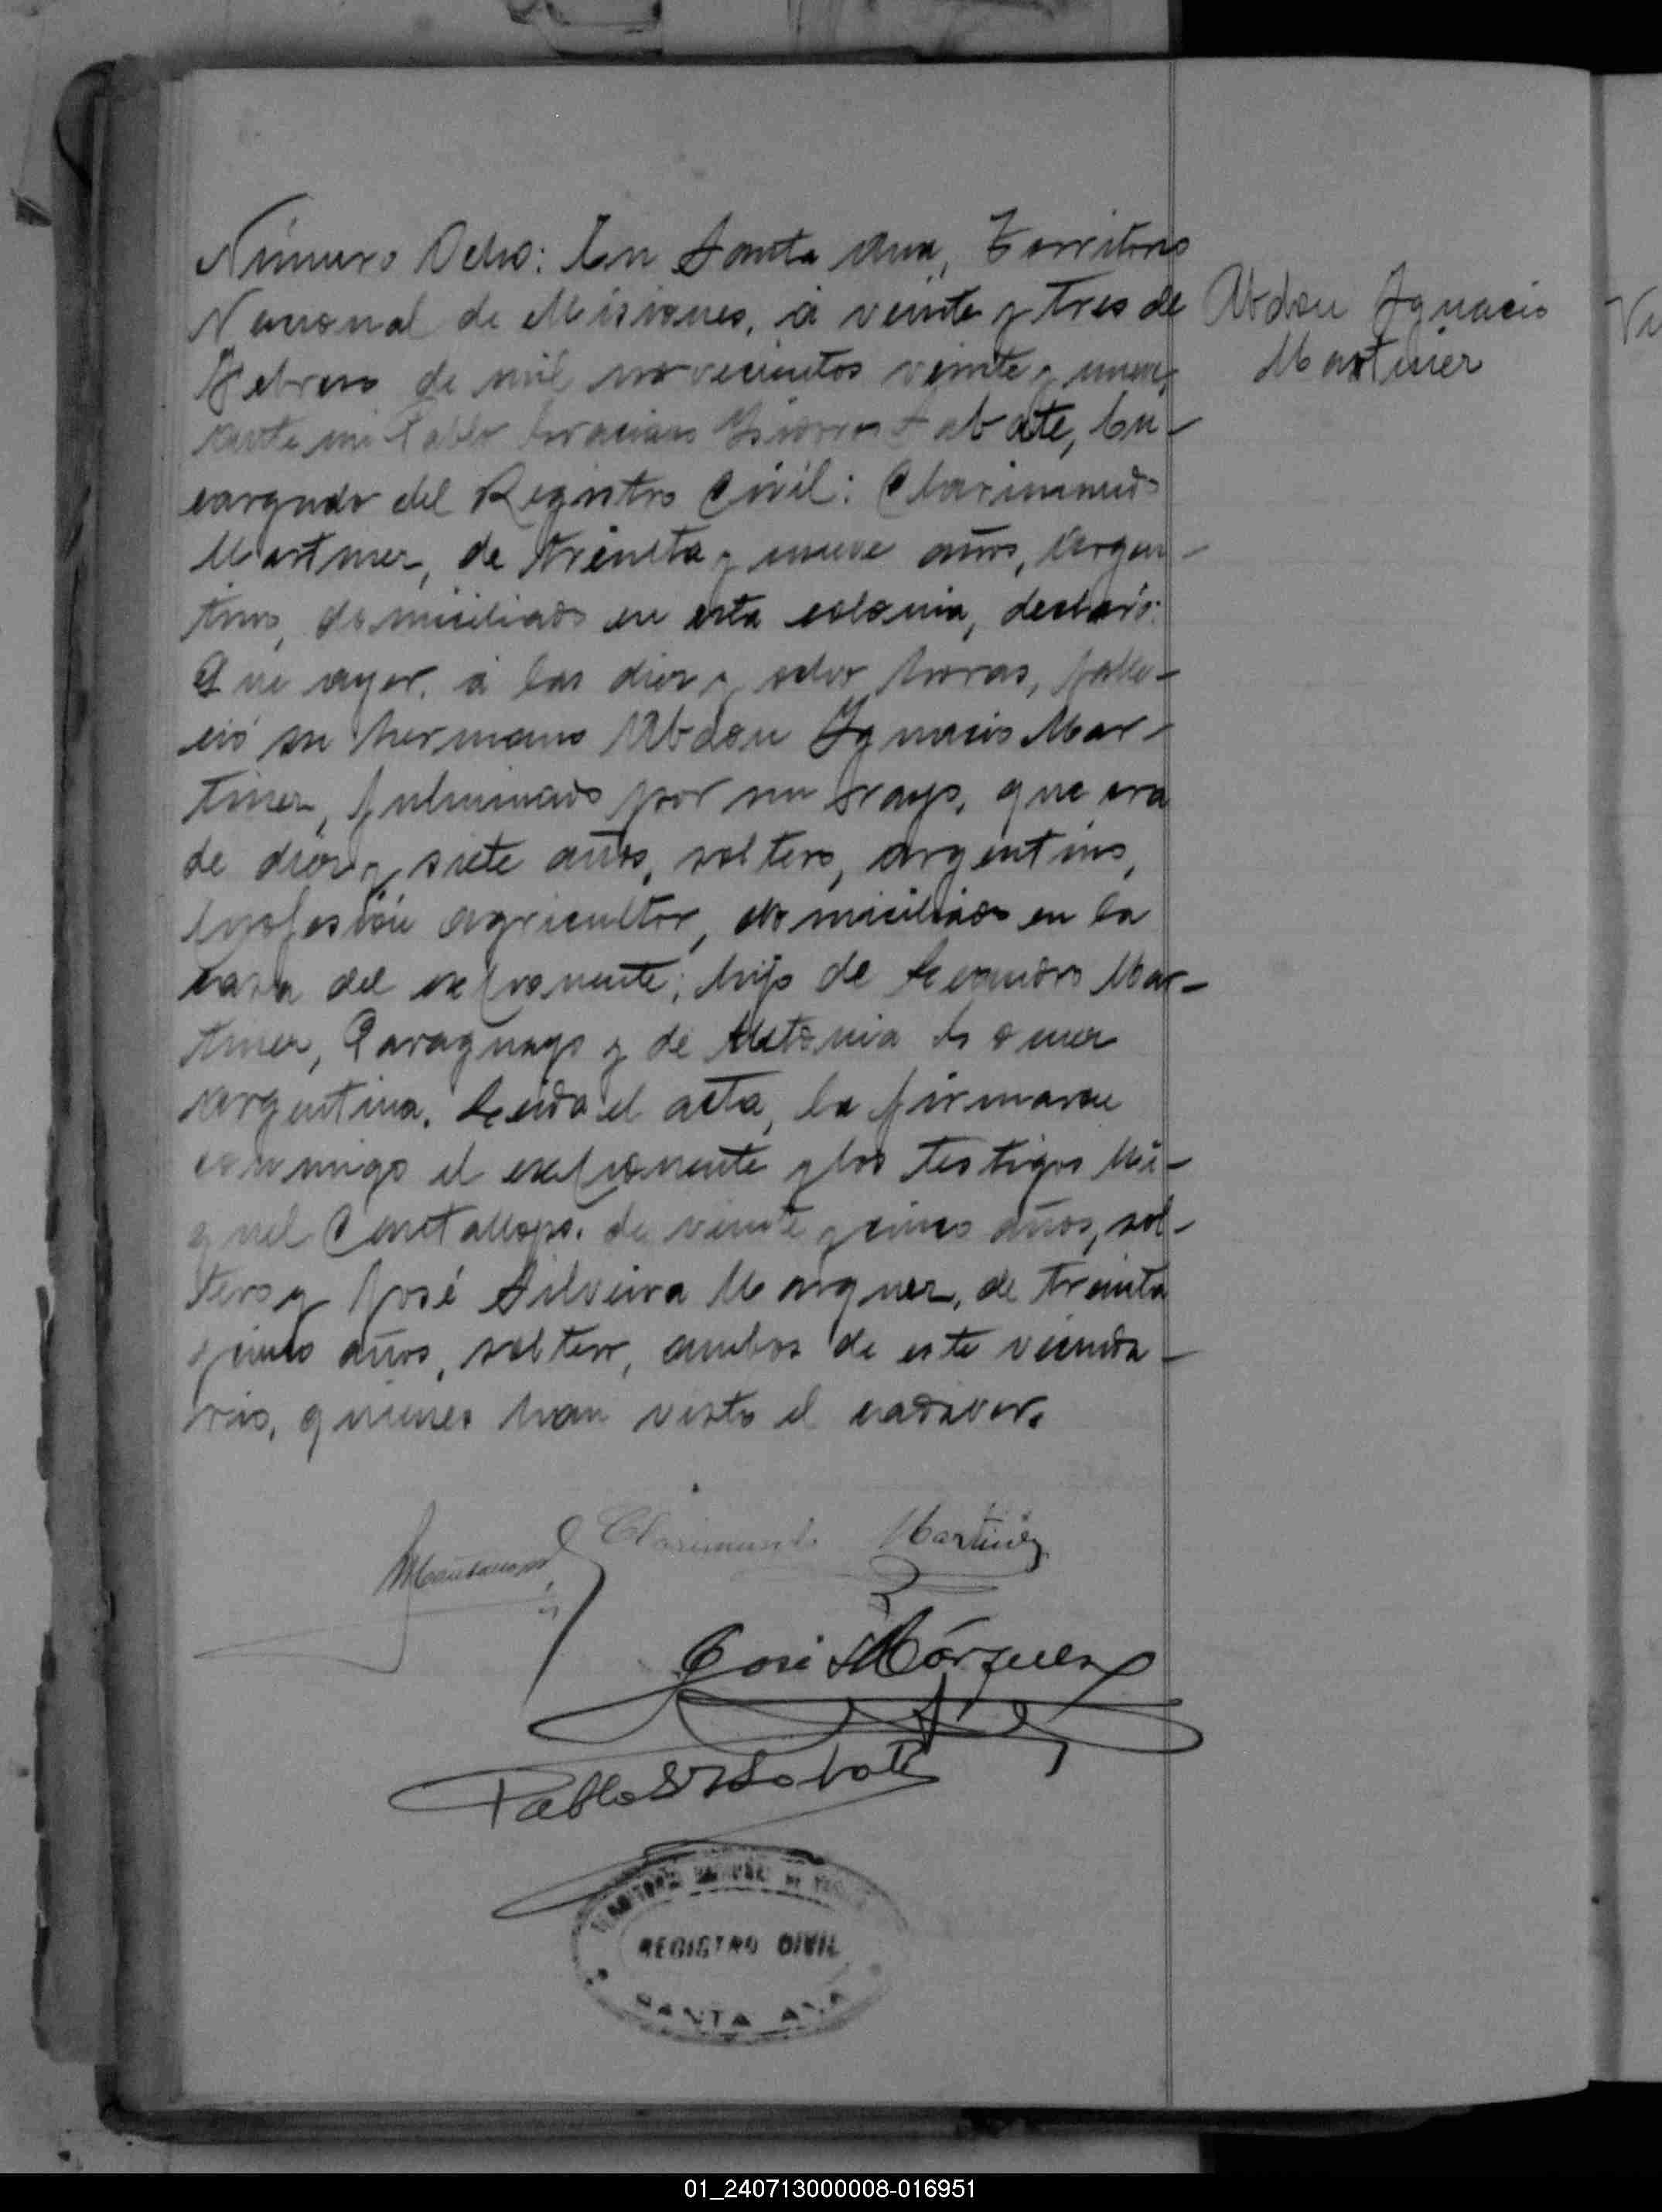 Número Ocho: En Santa Ana, Territorio
Nacional de Misiones, á veinte y tres de
Febrero de mil novecientos veinte y nueve,
ante mi Pablo Graciano Sabate, En-
cargado del Registro Civil: Clarimundo
Martinez, de treinta y nueve años, argen-
tino, domiciliado en esta colonia, declaró:
Que ayer, á las diez y ocho horas, falle-
ció su hermano Abdon Ignacio Mar-
tinez, fulminado por un rayo, que era
de diez y siete años, soltero, argentino,
profesión agricultor, domiciliado en la
casa del exponente; hijo de Leandro Mar-
tinez, Paraguayo y de
argentina. Leida el acta, la firmaron
conmigo el exponente y los testigos Mi-
guel de veinte y cinco años, sol-
tero y José Silveira Marquez, de treinta
y cinco años, soltero, ambos de este vecinda-
rio, quienes han visto el cadaver.
Abdon Ignacio
Martinez
Clarimundo Martinez
José S Márquez
Pablo G Y Sabate
TERRITORIO NACIONAL DE MISIONES
REGISTRO CIVIL
SANTA ANA
01_240713000008-016951